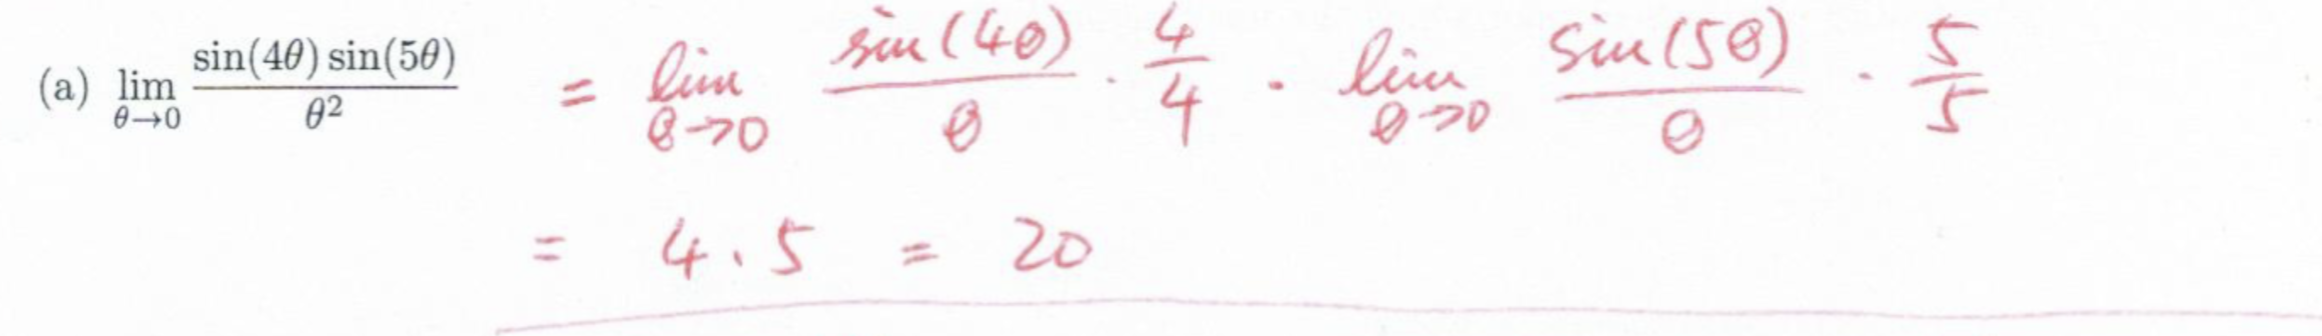 (a) lim θ→0 sin(4θ) sin(5θ) / θ² = lim θ→0 sin(4θ) / θ · 4/4 · lim θ→0 sin(5θ) / θ · 5/5
= 4 · 5 = 20